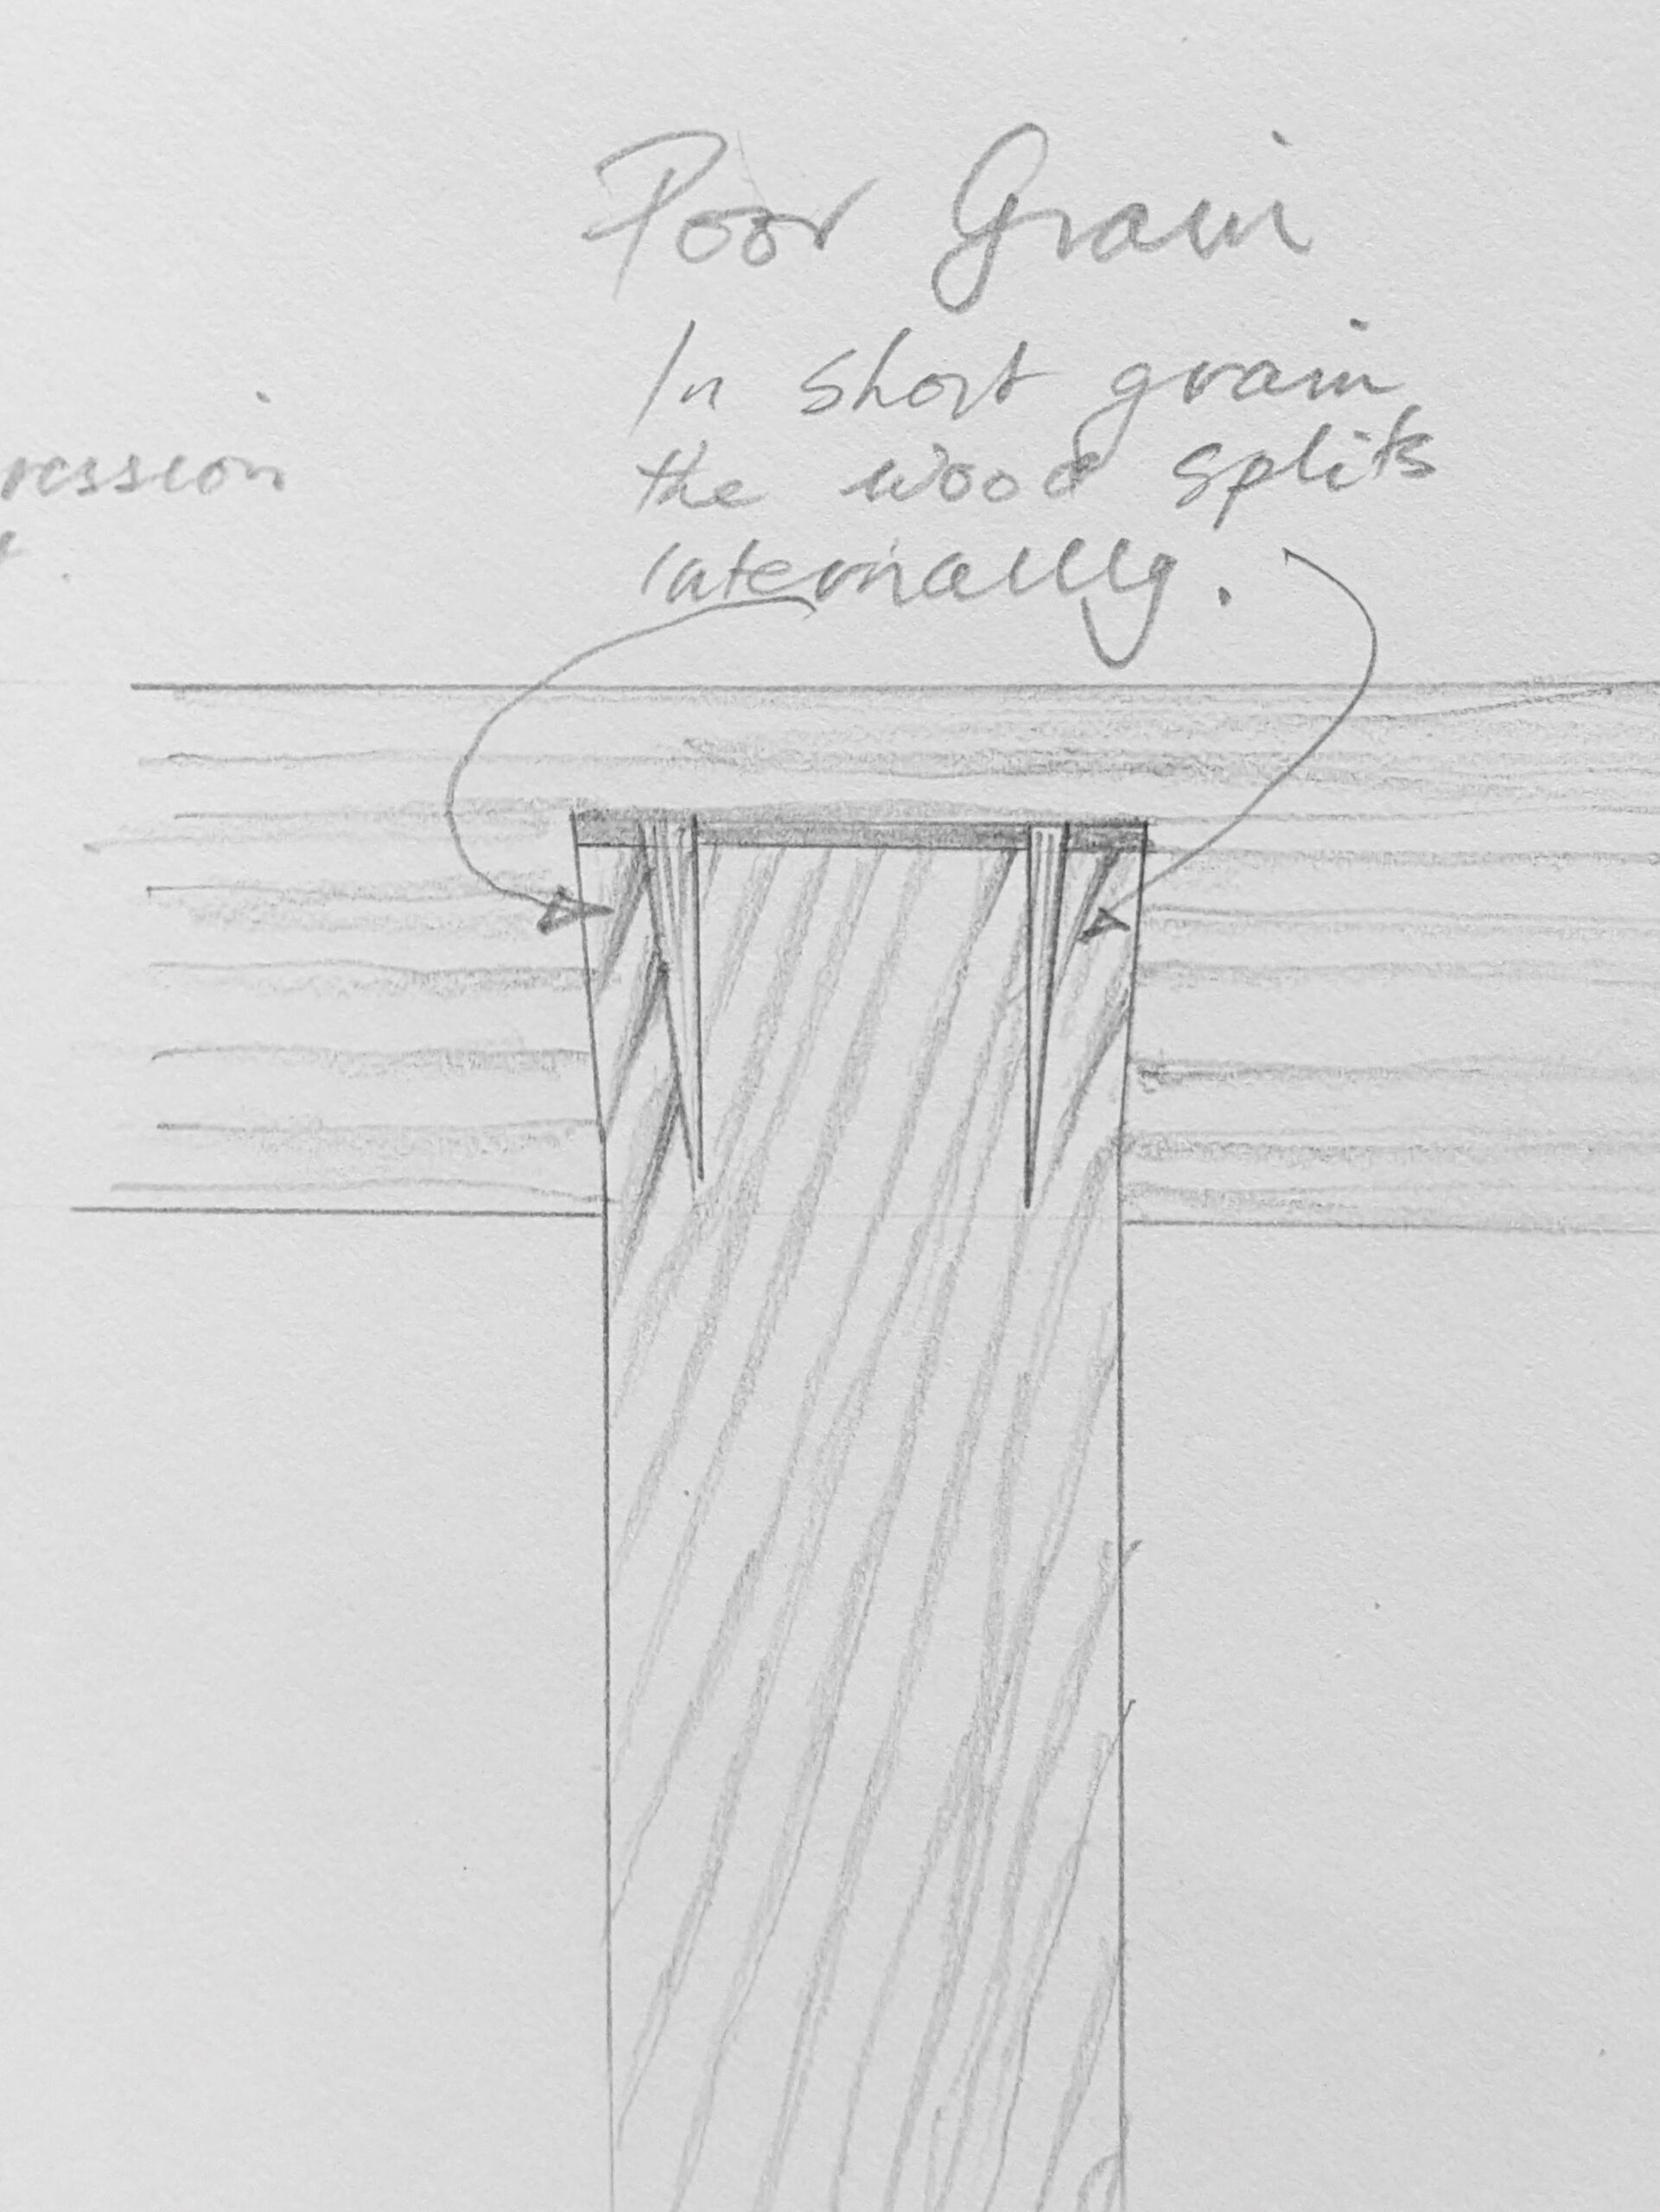 Poor Grain
In short grain
the wood splits
internally.
ression